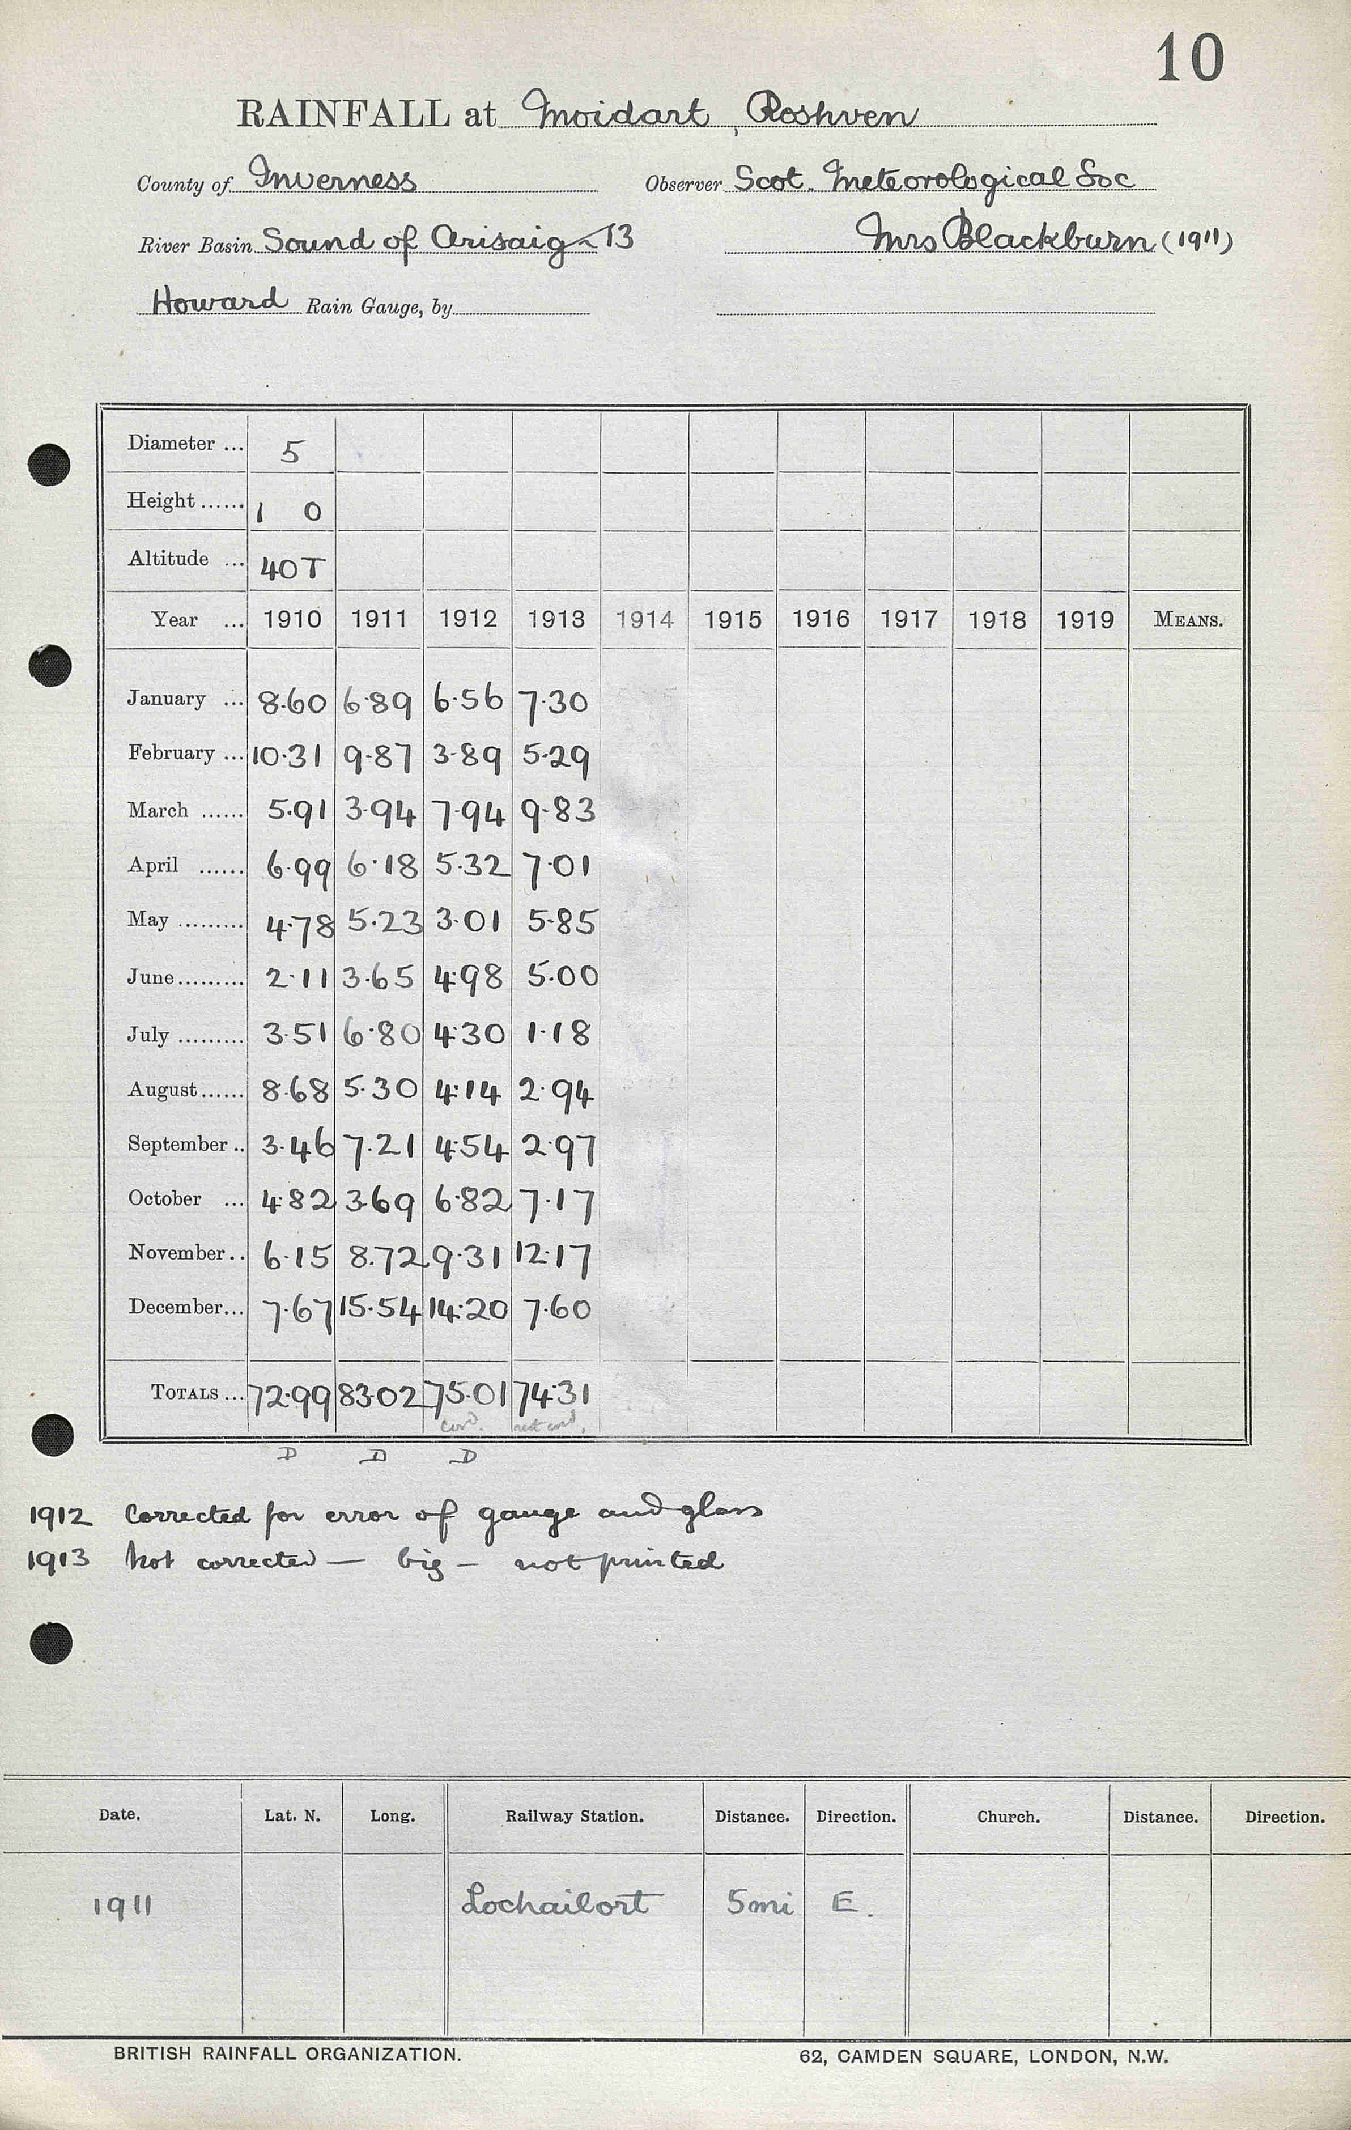 10
RAINFALL at Moidart, Roshven
County of Inverness Observer Scot. Meteorological Soc
River Basin Sound of Arisaig - 13 Mrs Blackburn (1911)
Howard Rain Gauge, by
Diameter ... 5
Height ...... 1 0
Altitude ... 40T
Year ... 1910 1911 1912 1913 1914 1915 1916 1917 1918 1919 MEANS.
January ... 8.60 6.89 6.56 7.30
February ... 10.31 9.87 3.89 5.29
March ...... 5.91 3.94 7.94 9.83
April ...... 6.99 6.18 5.32 7.01
May ......... 4.78 5.23 3.01 5.85
June ......... 2.11 3.65 4.98 5.00
July ......... 3.51 6.80 4.30 1.18
August ...... 8.68 5.30 4.14 2.94
September .. 3.46 7.21 4.54 2.97
October ... 4.82 3.69 6.82 7.17
November .. 6.15 8.72 9.31 12.17
December ... 7.67 15.54 14.20 7.60
TOTALS ... 72.99 83.02 75.01 74.31
cord. not cord.
D D D
1912 Corrected for error of gauge and glass
1913 Not corrected — big — not printed
Date. Lat. N. Long. Railway Station. Distance. Direction. Church. Distance. Direction.
1911 Lochailort 5mi E.
BRITISH RAINFALL ORGANIZATION. 62, CAMDEN SQUARE, LONDON, N.W.